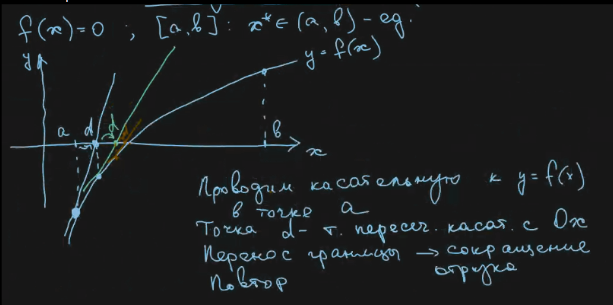 f(x)=0 ; [a,b]: x*∈(a,b) - ед.
y
y=f(x)
a d d b
x
Проводим касательную к y=f(x)
в точке a
Точка d - т. пересеч. касат. с Ox
Перенос границы → сокращение
отрезка
Повтор